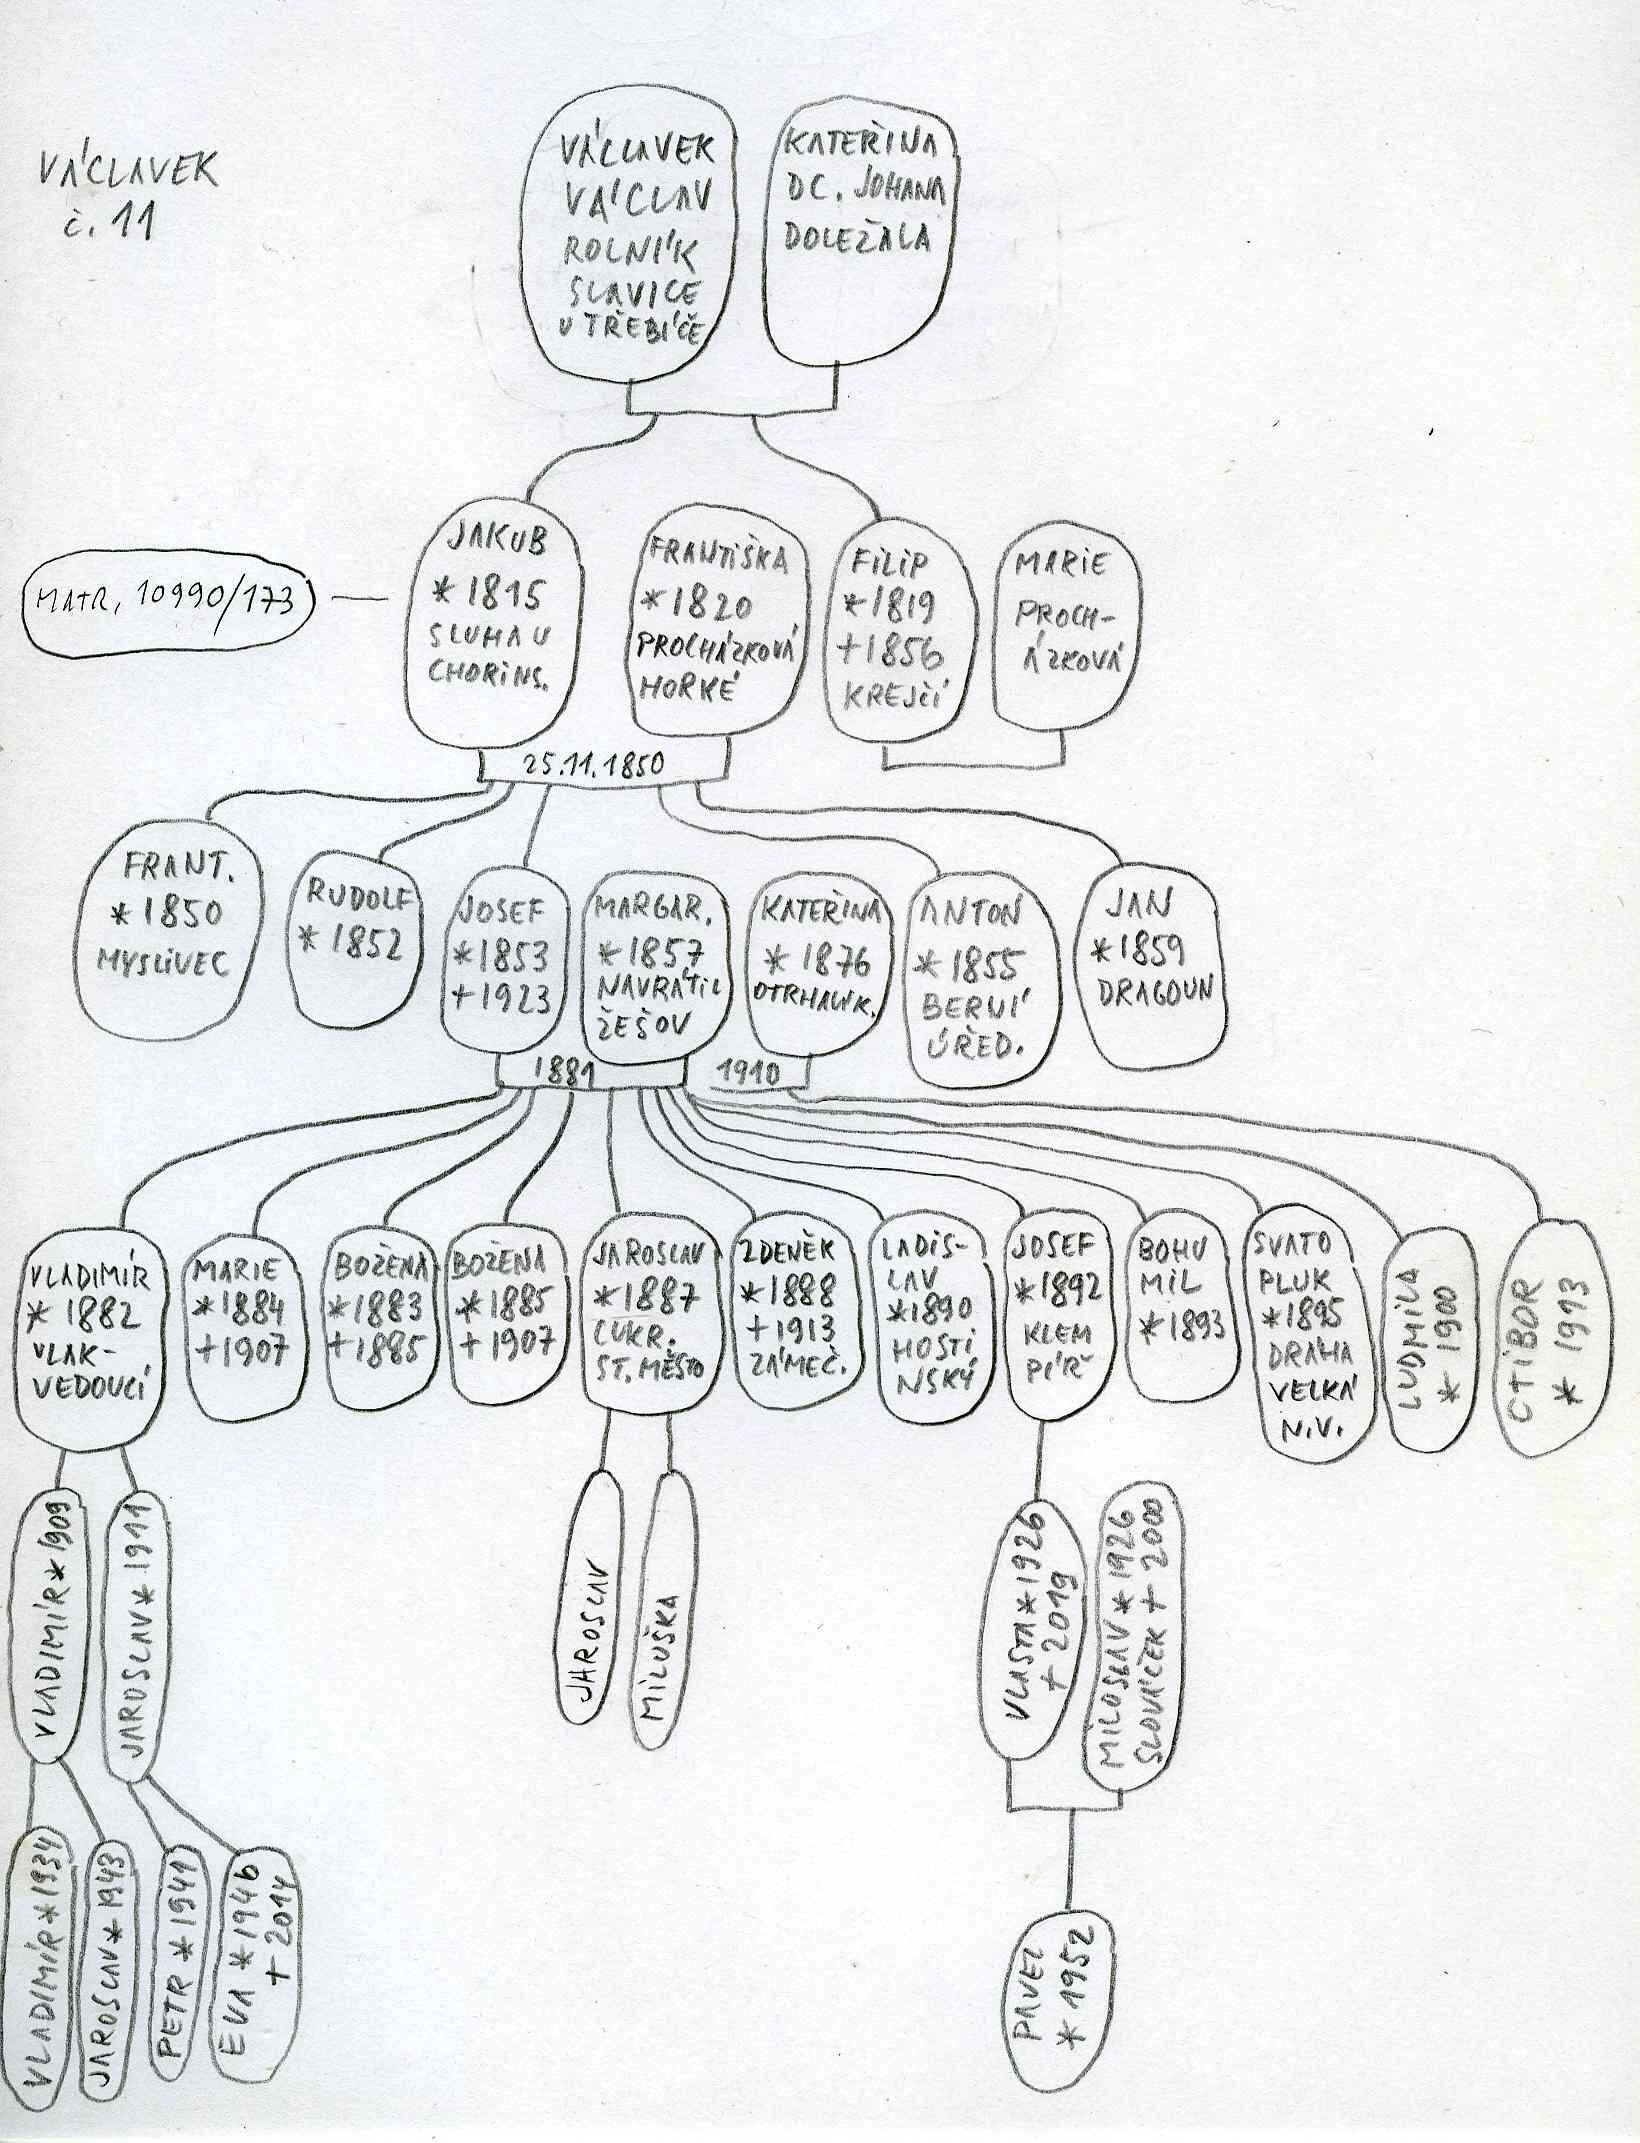 VÁCLAVEK
č. 11
VÁCLAVEK
VÁCLAV
ROLNÍK
SLAVICE
U TŘEBÍČE
KATEŘINA
DC. JOHANA
DOLEŽALA
MATR. 10990/173
JAKUB
* 1815
SLUHA U
CHORINS.
FRANTIŠKA
* 1820
PROCHÁZKOVÁ
HORKÉ
FILIP
* 1819
+ 1856
KREJČÍ
MARIE
PROCH-
ÁZKOVÁ
25.11.1850
FRANT.
* 1850
MYSLIVEC
RUDOLF
* 1852
JOSEF
* 1853
+ 1923
MARGAR.
* 1857
NAVRÁTIL
ŽEŠOV
KATEŘINA
* 1876
ANTON
* 1855
BERNÍ
ÚŘED.
JAN
* 1859
DRAGOUN
1881
1910
VLADIMÍR
* 1882
VLAK-
VEDOUCÍ
MARIE
* 1884
+ 1907
BOŽENA
* 1883
+ 1885
BOŽENA
* 1885
+ 1907
JAROSLAV
* 1887
CUKR.
ST. MĚSTO
ZDENĚK
* 1888
+ 1913
ZÁMEČ.
LADIS-
LAV
* 1890
HOSTI
NSKÝ
JOSEF
* 1892
KLEM
PÍŘ
BOHU
MIL
* 1893
SVATO
PLUK
* 1895
DRÁHA
VELKÁ
N.V.
LUDMILA
* 1900
CTIBOR
* 1913
VLADIMÍR * 1909
JAROSLAV * 1911
JAROSLAV
MILUŠKA
VLASTA * 1926
+ 2019
MILOSLAV * 1926
SLOVÁČEK + 2000
VLADIMÍR * 1934
JAROSLAV * 1943
PETR * 1941
EVA * 1946
+ 2014
PAVEL
* 1952